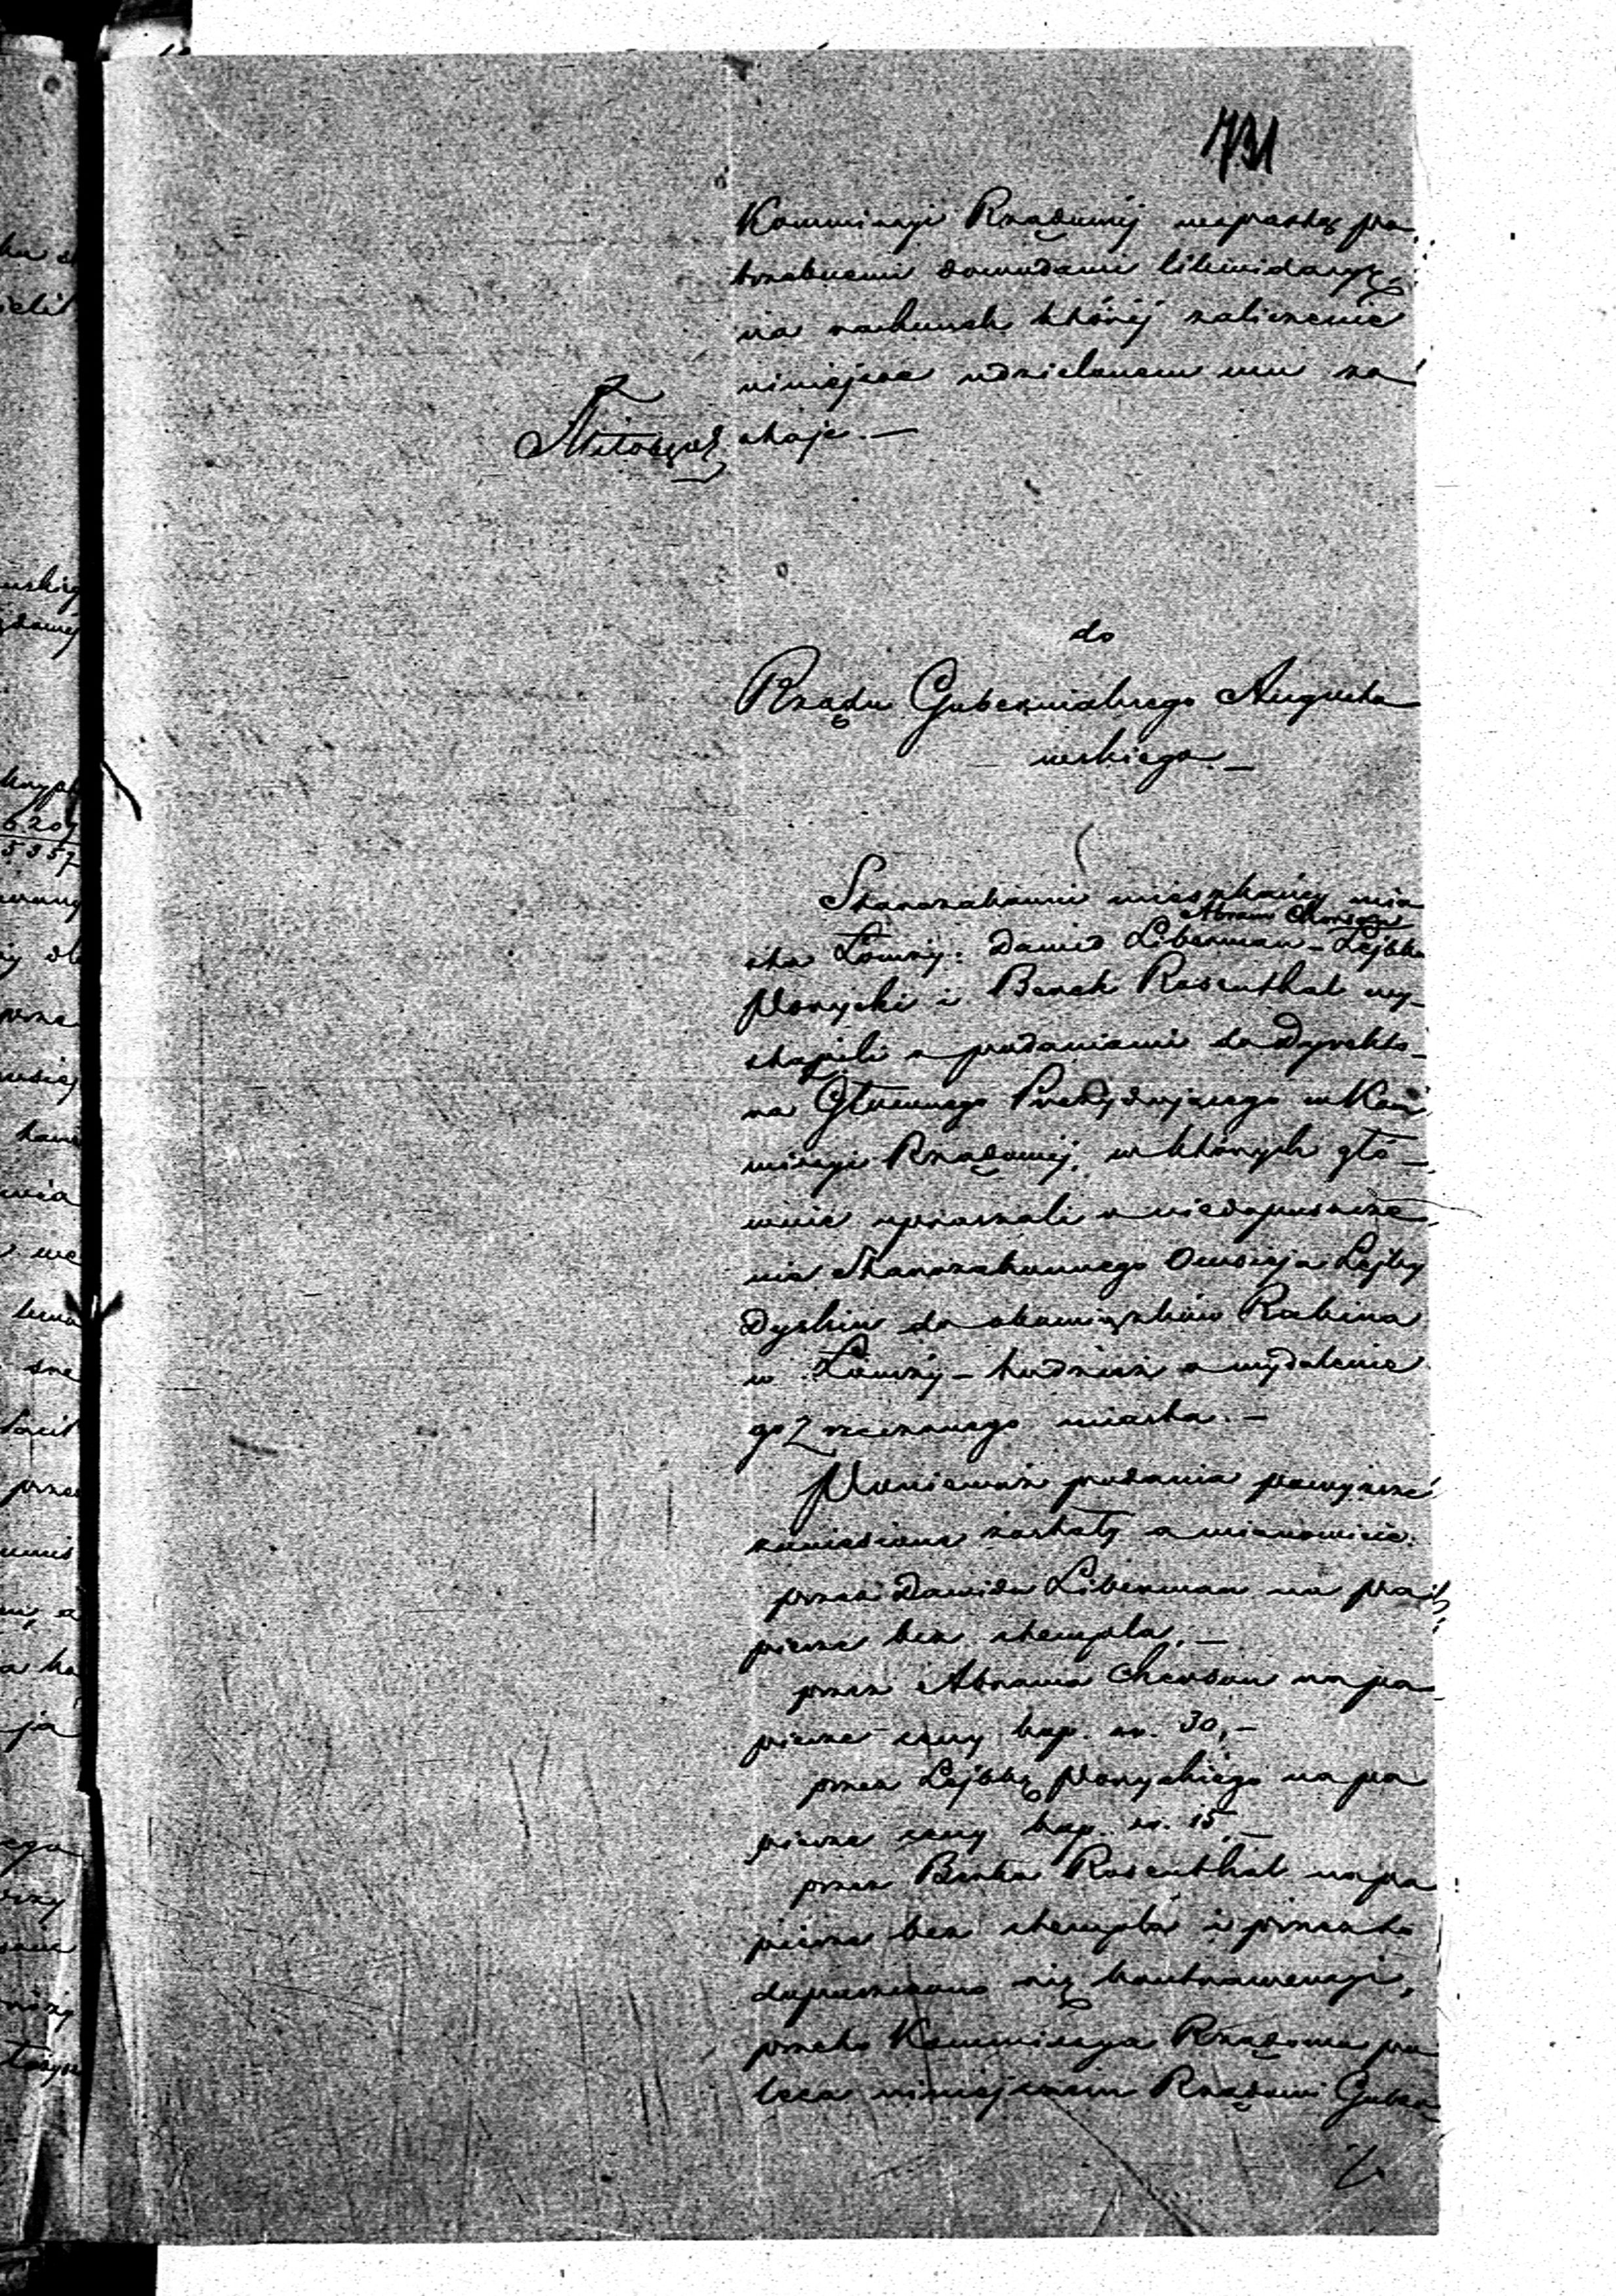 731
Kommissyi Rządowéj wespół z po
trzebnemi dowodami likwidacyę
na rachunek któréj zaliczenie
niniejsze udzielonem mu zo
staje. —
do
Rządu Gubernialnego Augusto
wskiego. —
Starozakonni mieszkańcy mia
Abram Chersson
sta Łomży: Dawid Liberman – Lejbka
Porycki i Berek Rosenthal wy-
stąpili z podaniami do Dyrekto-
ra Głównego Prezydującego w Kom
missyi Rządowéj, w których głó-
wnie upraszali o niedopuszcze-
nie Starozakonnego Owsieja Lejby
Dyskin do obowiązków Rabina
w Łomży – tudzież o wydalenie
go z rzeczonego miasta. —
Ponieważ podania powyższe
zaniesione zostały a mianowicie:
przez Dawida Liberman na pa
pierze bez stempla. —
przez Abrama Chersson na pa
pierze ceny kop. sr. 30, —
przez Lejbkę Poryckiego na pa
pierze ceny kop. sr. 15, —
przez Berka Rosenthal na pa
pierze bez stempla i przez to
dopuszczono się kontrawencyi,
przeto Kommissya Rządowa po
leca niniejszem Rządowi Guber